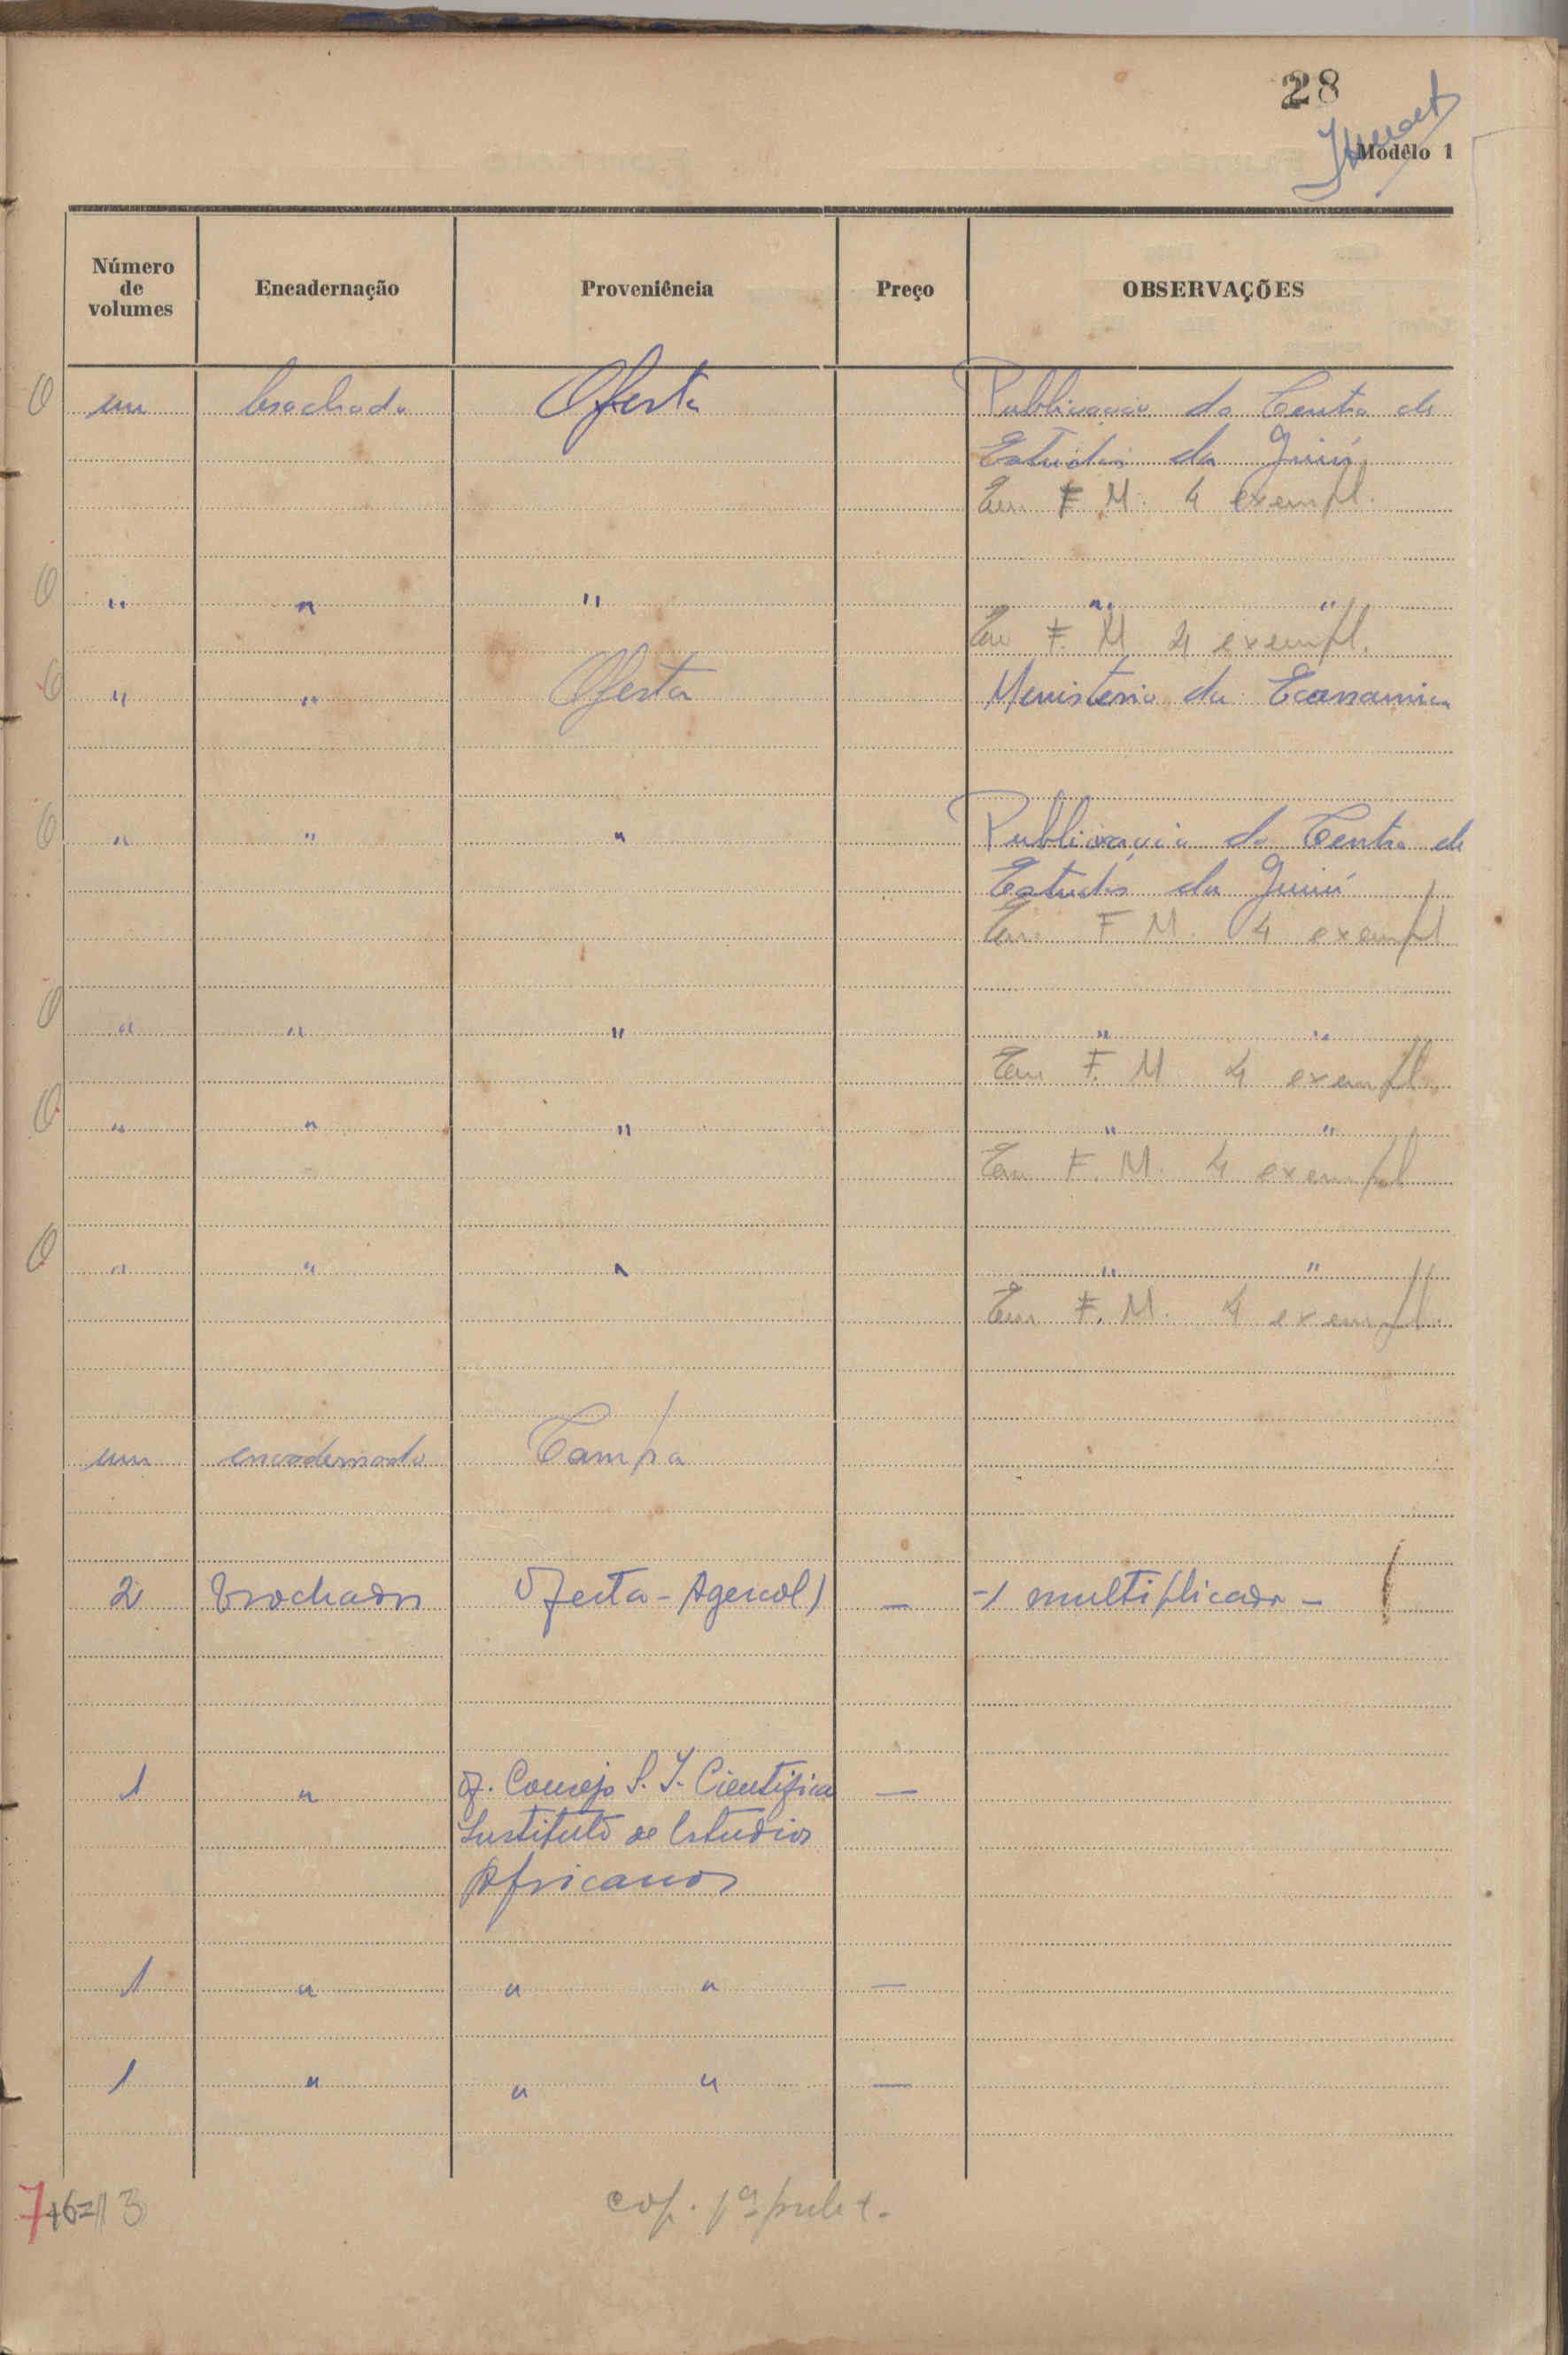 28
Modêlo 1
Número de volumes Encadernação Proveniência Preço OBSERVAÇÕES
O um brochado Oferta Publicação do Centro de
Estudos da Guiné
Em F. M. 4 exempl.
O " " " " "
Em F. M. 4 exempl.
O " " Oferta Ministério da Economia
O " " " Publicação do Centro de
Estudos da Guiné
Em F. M. 4 exempl
O " " " " "
Em F. M. 4 exempl.
O " " " " "
Em F. M. 4 exempl
O " " " " "
Em F. M. 4 exempl.
um encadernado Compra
2 brochados Oferta - Agencol) — -1 multiplicado -
1 " of. Consejo S. I. Cientifica —
Instituto de Estudios
Africanos
1 " " " —
1 " " " —
7+6=13
cop. pª publ.